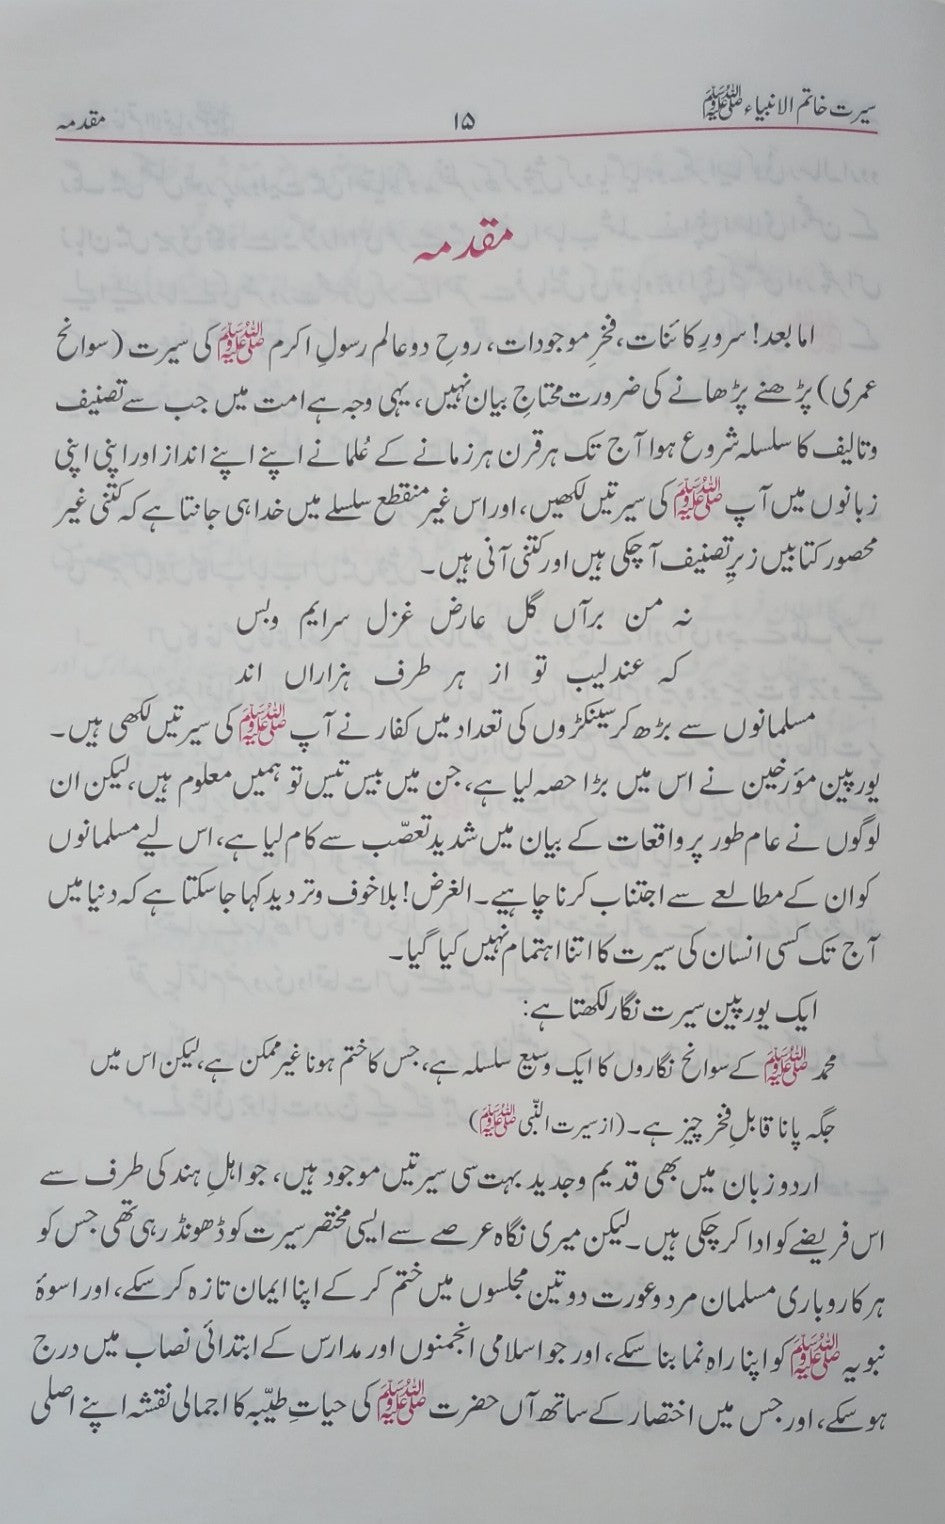 سیرت خاتم الانبیاء ﷺ
۱۵
مقدمہ
مقدمہ
اما بعد! سرورِ کائنات، فخرِ موجودات، روحِ دو عالم رسولِ اکرم ﷺ کی سیرت (سوانح
عمری) پڑھنے پڑھانے کی ضرورت محتاجِ بیان نہیں، یہی وجہ ہے امت میں جب سے تصنیف
وتالیف کا سلسلہ شروع ہوا آج تک ہر قرن ہر زمانے کے عُلما نے اپنے اپنے انداز اور اپنی اپنی
زبانوں میں آپ ﷺ کی سیرتیں لکھیں، اور اس غیر منقطع سلسلے میں خدا ہی جانتا ہے کہ کتنی غیر
محصور کتابیں زیرِ تصنیف آچکی ہیں اور کتنی آنی ہیں۔
نہ من برآں گل عارض غزل سرایم وبس
کہ عندلیب تو از ہر طرف ہزاراں اند
مسلمانوں سے بڑھ کر سینکڑوں کی تعداد میں کفار نے آپ ﷺ کی سیرتیں لکھی ہیں۔
یورپین مؤرخین نے اس میں بڑا حصہ لیا ہے، جن میں بیس تیس تو ہمیں معلوم ہیں، لیکن ان
لوگوں نے عام طور پر واقعات کے بیان میں شدید تعصّب سے کام لیا ہے، اس لیے مسلمانوں
کو ان کے مطالعے سے اجتناب کرنا چاہیے۔ الغرض! بلا خوف وتردید کہا جاسکتا ہے کہ دنیا میں
آج تک کسی انسان کی سیرت کا اتنا اہتمام نہیں کیا گیا۔
ایک یورپین سیرت نگار لکھتا ہے:
محمد ﷺ کے سوانح نگاروں کا ایک وسیع سلسلہ ہے، جس کا ختم ہونا غیر ممکن ہے، لیکن اس میں
جگہ پانا قابلِ فخر چیز ہے۔ (از سیرت النّبی ﷺ)
اردو زبان میں بھی قدیم وجدید بہت سی سیرتیں موجود ہیں، جو اہلِ ہند کی طرف سے
اس فریضے کو ادا کرچکی ہیں۔ لیکن میری نگاہ عرصے سے ایسی مختصر سیرت کو ڈھونڈ رہی تھی جس کو
ہر کاروباری مسلمان مرد وعورت دو تین مجلسوں میں ختم کر کے اپنا ایمان تازہ کرسکے، اور اسوۂ
نبویہ ﷺ کو اپنا راہ نما بنا سکے، اور جو اسلامی انجمنوں اور مدارس کے ابتدائی نصاب میں درج
ہوسکے، اور جس میں اختصار کے ساتھ آں حضرت ﷺ کی حیاتِ طیّبہ کا اجمالی نقشہ اپنے اصلی